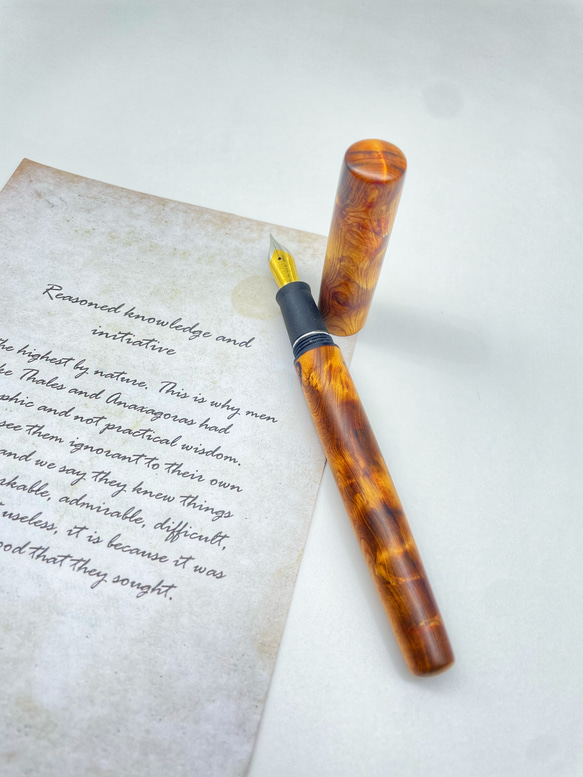 Reasoned knowledge and
initiative
the highest by nature. This is why men
Thales and Anaxagoras had
and not practical wisdom.
see them ignorant to their own
and we say they knew things
admirable, difficult,
useless, it is because it was
that they sought.